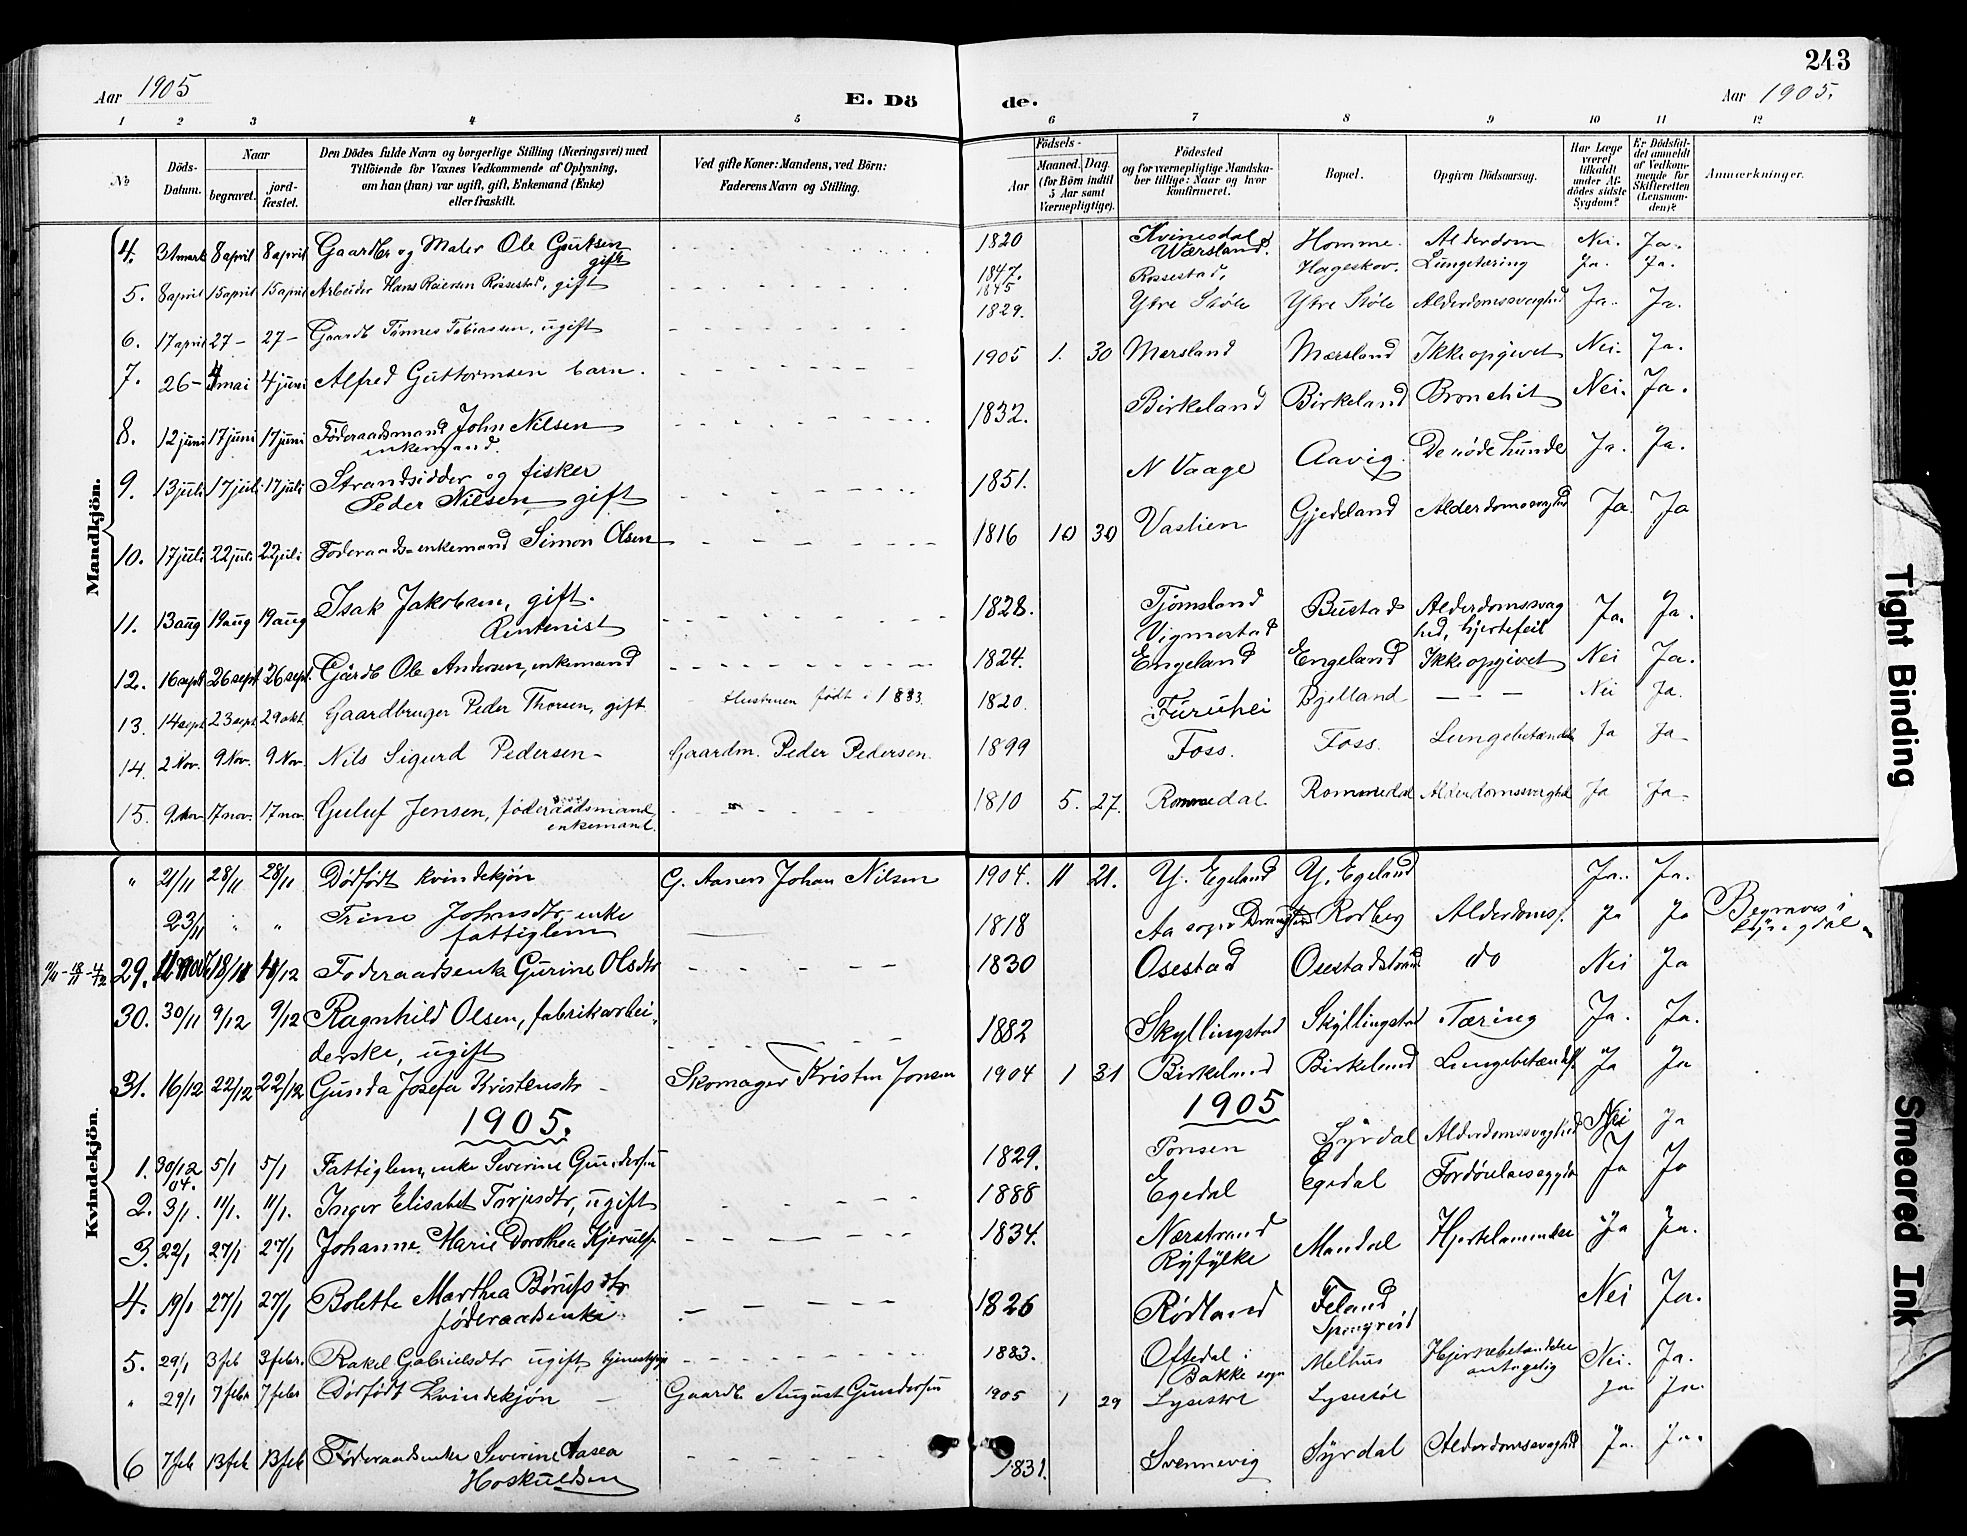 243
Aar 1905
E. Dö
de.
Aar 1905.
1 2 3 4 5 6 7 8 9 10 11 12
No
Döds-Datum.
Naar
begravet.
jord-fæstet.
Den Dödes fulde Navn og borgerlige Stilling (Næringsvei) med
Tilföiende for Voxnes Vedkommende af Oplysning,
om han (hun) var ugift, gift, Enkemand (Enke)
eller fraskilt.
Ved gifte Koner: Mandens, ved Börn:
Faderens Navn og Stilling.
Födsels-
Aar
Maaned. Dag.
(for Börn indtil
5 Aar samt
Værnepligtige).
Födested
og for værnepligtige Mandska-
ber tillige: Naar og hvor
konfirmeret.
Bopæl.
Opgiven Dödsaarsag.
Har Læge
været
tilkaldt
under Af-
dödes sidste
Sygdom?
Er Dödsfal-
det anmeldt
af Vedkom-
mende for
Skifteretten
(Lensman-
den)?
Anmærkninger.
Mandkjön.
4. 31 mark 8 april 8 april Gaardbr og Maler Ole Guttsen gift 1820 Kvinesdal Wærsland. Homme. Alderdom Nei. Ja.
5. 8 april 15 april 15 april Arbeider Hans Reiersen Rossestad, gift 1847. 1845 Rossestad, Hageskov. Lungetæring Ja. Ja.
6. 17 april 27 – 27 – Gaardb Tönnes Tobiassen, ugift 1829. Ytre Støle Ytre Støle Alderdomssvaghed Ja. Ja.
7. 26 – 4 mai 4 juni Alfred Guttormsen barn. 1905 1. 30 Mersland Mersland Ikke opgivet Nei. Ja.
8. 12 juni 17 juni 17 juni Føderaadsmand John Nilsen enkemand. 1832. Birkeland Birkeland Bronchit Nei. Ja.
9. 13 juli 17 juli 17 juli Strandsidder og fisker Peder Nilsen, gift 1851. N Vaage Aavig. De røde hunde Ja. Ja.
10. 17 juli 22 juli 22 juli Føderaads-enkemand Simon Olsen 1816 10 30 Vastien Gjedeland Alderdomssvaghed Ja. Ja
11. 13 aug 19 aug 19 aug Isak Jakobsen, gift. Rentenist 1828. Tjomsland Vigmostad Bustad Alderdomssvaghed, hjertefeil Ja. Ja.
12. 16 sept 26 sept 26 sept. Gårdb Ole Andersen, enkemand 1824. Engeland Engeland Ikke opgivet Nei Ja.
13. 14 sept 23 sept 29 okt. Gaardbruger Peder Thorsen, gift Hustruen født i 1833 1820. Furuhei Bjelland – – – Nei Ja.
14. 2 Nov. 9 Nov. 9 Nov. Nils Sigurd Pedersen – Gaardm. Peder Pedersen. 1899 Foss. Foss. Lungebetændels Ja Ja
15. 9 Nov 17 nov. 17 nov. Guluf Jensen, føderaadsmand, enkemand. 1810 5. 27. Rommedal. Rommedal Alderdomssvaghed Ja Ja
Kvindekjön.
" 21/11 28/11 28/11 Dødfødt kvindekjön G. Aanen Johan Nilsen 1904. 11 21. Y. Egeland Y. Egeland Ja. Ja.
23/11 " " Trine Johnsdtr, enke fattiglem 1818 Aa sogn Rodberg Alderdomss. Ja Ja Begraves i Lyngdal.
29. 18/11 4/12 Føderaadsenke Gurine Olsdtr 1830 Osestad Osestadstrand do Nei Ja
30. 30/11 9/12 9/12 Ragnhild Olsen, fabrikarbei-
derske, ugift 1882 Skyllingstad Skyllingstad Tæring Ja. Ja.
31. 16/12 22/12 22/12 Gunda Josefa Kristensdtr – Skomager Kristen Jonsen 1904 1 31 Birkeland Birkeland Lungebetændels. Ja Ja
1905. 1905
1. 30/12 04. 5/1 5/1 Fattiglem, enke Severine Gundersen 1829. Ponsen Syrdal Alderdomssvaghed Nei Ja
2. 3/1. 11/1. 11/1. Inger Elisabet Tarjesdtr, ugift 1888 Egedal Egedal Ja Ja
3. 22/1 27/1 27/1 Johanne Marie Dorothea Kjerulf 1834. Nærstrand Ryfylke Mandal Hjertelammelse Ja Ja.
4. 19/1 27/1 27/1 Bolette Marthea Börufsdtr føderaadsenke 1826 Rødland Feland Nei Ja.
5. 29/1 3 feb 3 febr. Rakel Gabrielsdtr ugift tjenestepige 1883. Oftedal i Bakke sogn Melhus Hjernebetændelse antagelig Nei. Ja.
" 29/1 7 febr 7 febr Dødfødt Kvindekjön – Gaardb. August Gundersen 1905 1 29 Lysestøl Lysestøl Ja Ja.
6 7 feb 13 feb 13 feb Føderaadsenke Severine Aasea Hoskuldsen 1831. Svennevig Syrdal Alderdomssvaghed Ja. Ja.
Tight Binding
Smeared Ink